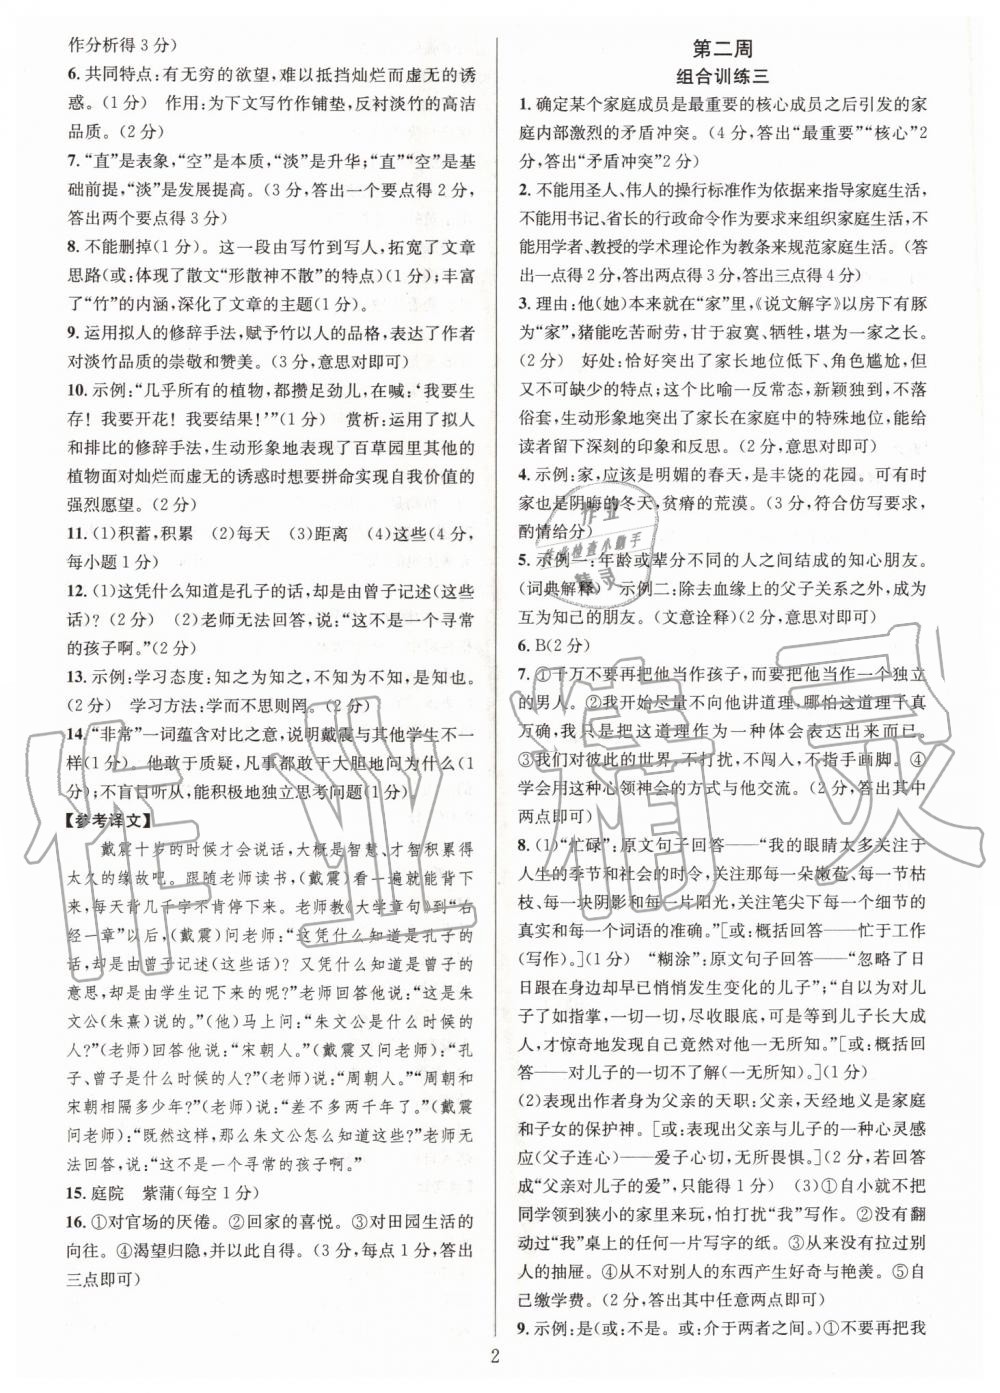 作分析得3分)
6.共同特点:有无穷的欲望,难以抵挡灿烂而虚无的诱
惑。(1分)　作用:为下文写竹作铺垫,反衬淡竹的高洁
品质。(2分)
7.“直”是表象,“空”是本质,“淡”是升华;“直”“空”是基
础前提,“淡”是发展提高。(3分,答出一个要点得2分,
答出两个要点得3分)
8.不能删掉(1分)。这一段由写竹到写人,拓宽了文章
思路(或:体现了散文“形散神不散”的特点)(1分);丰富
了“竹”的内涵,深化了文章的主题(1分)。
9.运用拟人的修辞手法,赋予竹以人的品格,表达了作者
对淡竹品质的崇敬和赞美。(3分,意思对即可)
10.示例:“几乎所有的植物,都攒足劲儿,在喊:‘我要生
存!我要开花!我要结果!’”(1分)　赏析:运用了拟人
和排比的修辞手法,生动形象地表现了百草园里其他的
植物面对灿烂而虚无的诱惑时想要拼命实现自我价值的
强烈愿望。(2分)
11.(1)积蓄,积累　(2)每天　(3)距离　(4)这些(4分,
每小题1分)
12.(1)这凭什么知道是孔子的话,却是由曾子记述(这些
话)?(2分)　(2)老师无法回答,说:“这不是一个寻常
的孩子啊。”(2分)
13.示例:学习态度:知之为知之,不知为不知,是知也。
(2分)　学习方法:学而不思则罔。(2分)
14.“非常”一词蕴含对比之意,说明戴震与其他学生不一
样(1分)。他敢于质疑,凡事都敢于大胆地问为什么(1
分);不盲目听从,能积极地独立思考问题(1分)。
【参考译文】
戴震十岁的时候才会说话,大概是智慧、才智积累得
太久的缘故吧。跟随老师读书,(戴震)看一遍就能背下
来,每天背几千字不肯停下来。老师教《大学章句》到“右
经一章”以后,(戴震)问老师:“这凭什么知道是孔子的
话,却是由曾子记述(这些话)?又凭什么知道是曾子的
意思,却是由学生记下来的呢?”老师回答他说:“这是朱
文公(朱熹)说的。”(他)马上问:“朱文公是什么时候的
人?”(老师)回答他说:“宋朝人。”(戴震又问老师):“孔
子、曾子是什么时候的人?”(老师)说:“周朝人。”“周朝和
宋朝相隔多少年?”(老师)说:“差不多两千年了。”(戴震
问老师):“既然这样,那么朱文公怎么知道这些?”老师无
法回答,说:“这是一个不寻常的孩子啊。”
15.庭院　紫蒲(每空1分)
16.①对官场的厌倦。②回家的喜悦。③对田园生活的
向往。④渴望归隐,并以此自得。(3分,每点1分,答出
三点即可)
第二周
组合训练三
1.确定某个家庭成员是最重要的核心成员之后引发的家
庭内部激烈的矛盾冲突。(4分,答出“最重要”“核心”2
分,答出“矛盾冲突”2分)
2.不能用圣人、伟人的操行标准作为依据来指导家庭生活,
不能用书记、省长的行政命令作为要求来组织家庭生活,不
能用学者、教授的学术理论作为教条来规范家庭生活。(答
出一点得2分,答出两点得3分,答出三点得4分)
3.理由:他(她)本来就在“家”里,《说文解字》以房下有豚
为“家”,猪能吃苦耐劳,甘于寂寞、牺牲,堪为一家之长。
(2分)　好处:恰好突出了家长地位低下、角色尴尬,但
又不可缺少的特点;这个比喻一反常态,新颖独到,不落
俗套,生动形象地突出了家长在家庭中的特殊地位,能给
读者留下深刻的印象和反思。(2分,意思对即可)
4.示例:家,应该是明媚的春天,是丰饶的花园。可有时
家也是阴晦的冬天,贫瘠的荒漠。(3分,符合仿写要求,
酌情给分)
5.示例一:年龄或辈分不同的人之间结成的知心朋友。
(词典解释)　示例二:除去血缘上的父子关系,亲密到相
互为知己的朋友。(文意诠释)(2分,意思对即可)
6.B(2分)
7.①千万不要再把他当作孩子,而要把他当作一个独立
的男人。②我开始尽量不与他讲道理,哪怕这道理千真
万确,我只是把这道理作为一种体会表达出来而已。
③我们对彼此的世界,不打扰,不闯入,不指手画脚。④
学会用这种心领神会的方式与他交流。(2分,答出其中
两点即可)
8.(1)“忙碌”:原文句子回答——“我的眼睛太多关注于
人生的季节和社会的时令,关注那每一朵嫩苞、每一节枯
枝、每一块阴影和每一片阳光,关注笔尖下每一个细节的
真实和每一个词语的准确。”[或:概括回答——忙于工作
(写作)。](1分)　“糊涂”:原文句子回答——“忽略了日
日跟在身边却早已悄悄发生变化的儿子”;“自以为对儿子
了如指掌,一切一切,尽收眼底,可是等到儿子长大成
人,才惊奇地发现自己竟然对他一无所知。”[或:概括回
答——对儿子的一切不了解(一无所知)。](1分)
(2)表现出作者身为父亲的天职:父亲,天经地义是家庭
和子女的保护神。[或:表现出父亲与儿子的一种心灵感
应(父子连心)——爱子心切,无所畏惧。](2分,如果答
“父亲对儿子的爱”,只能得1分)　(3)①自己从不把
同学领到狭小的家里来玩,怕打扰“我”写作。②没有翻
动过“我”桌上的任何一片写字的纸。③从来没拉开过别
人的抽屉。④从不对别人的东西产生好奇与艳羡。⑤自
己缴学费。(2分,答出其中任意两点即可)
9.示例:是(或:不是。或:介于两者之间。)①不要再把我
2